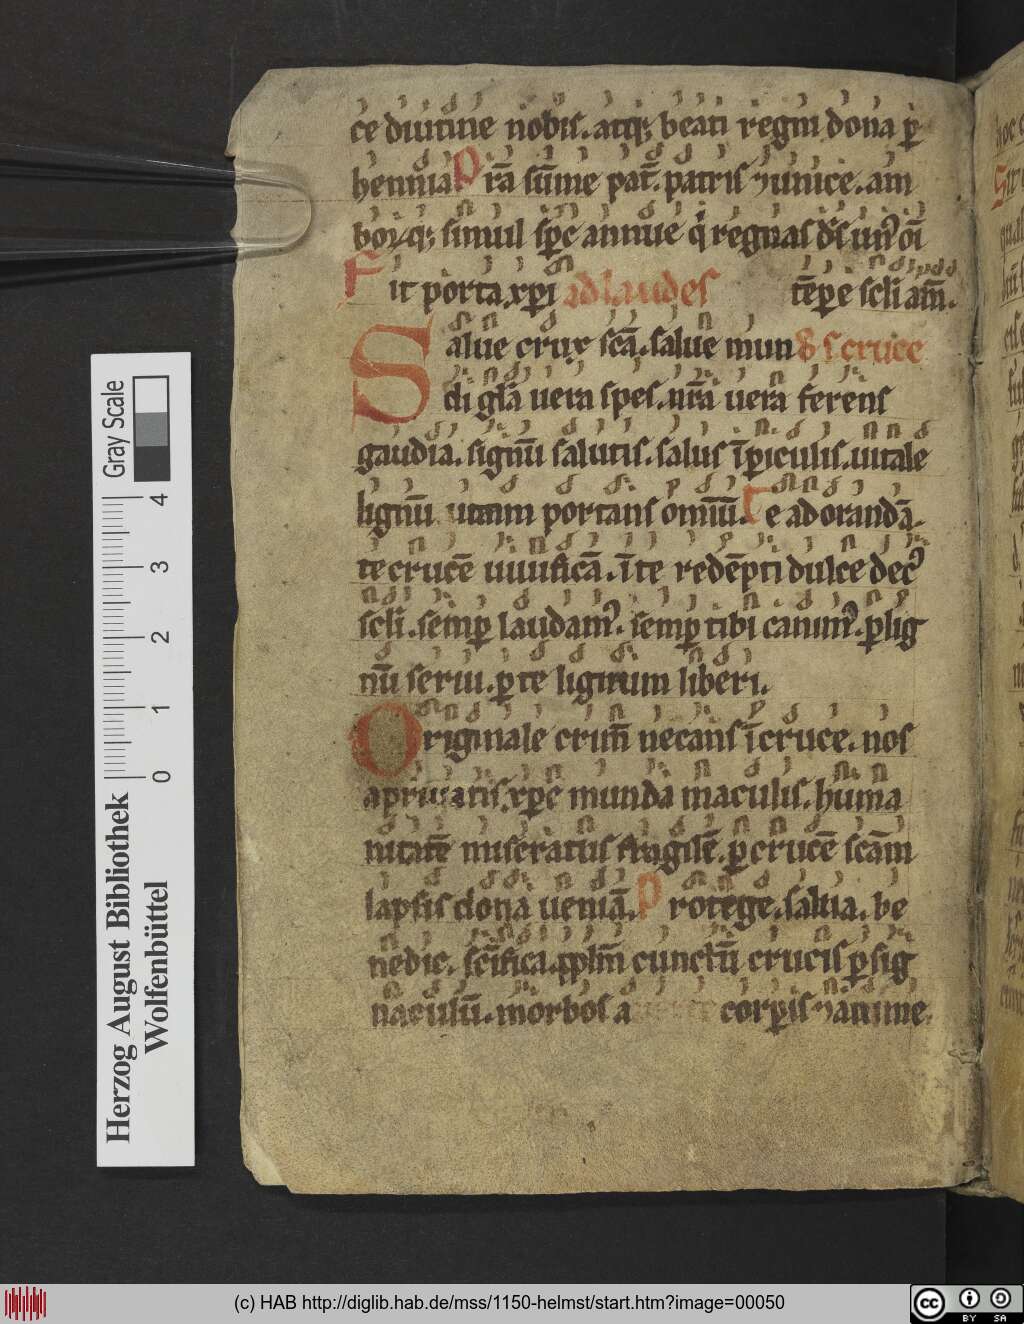 ce diutine nobis. atq; beati regni dona p
hennia Pra sūme pat. patris ⁊unice. am
borq; simul spc annue q regnas ds un9 oī
Fit porta xpi ad laudes tēpe scli am.
Salue crux scā. salue mun d s cruce
di glā uera spes. nrā uera ferens
gaudia. signū salutis. salus ī periculis. uitale
lignū uitam portans omiū. Te adorandā.
te crucē uiuificā. ī te redēpti dulce dec9
scli. semp laudam9. semp tibi canim9. p lig
nū serui. p te lignum liberi.
Originale crim̄ necans ī cruce. nos
a priuatis. xpe munda maculis. huma
nitatē miseratus fragilē. p crucē scām
lapsis dona ueniā. Protege. salua. be
nedic. scīfica. pplm̄ cunctū crucis p sig
naculū. morbos a corpis ⁊anime.
Gray Scale
4
3
2
1
0
Herzog August Bibliothek
Wolfenbüttel
(c) HAB http://diglib.hab.de/mss/1150-helmst/start.htm?image=00050
cc BY SA